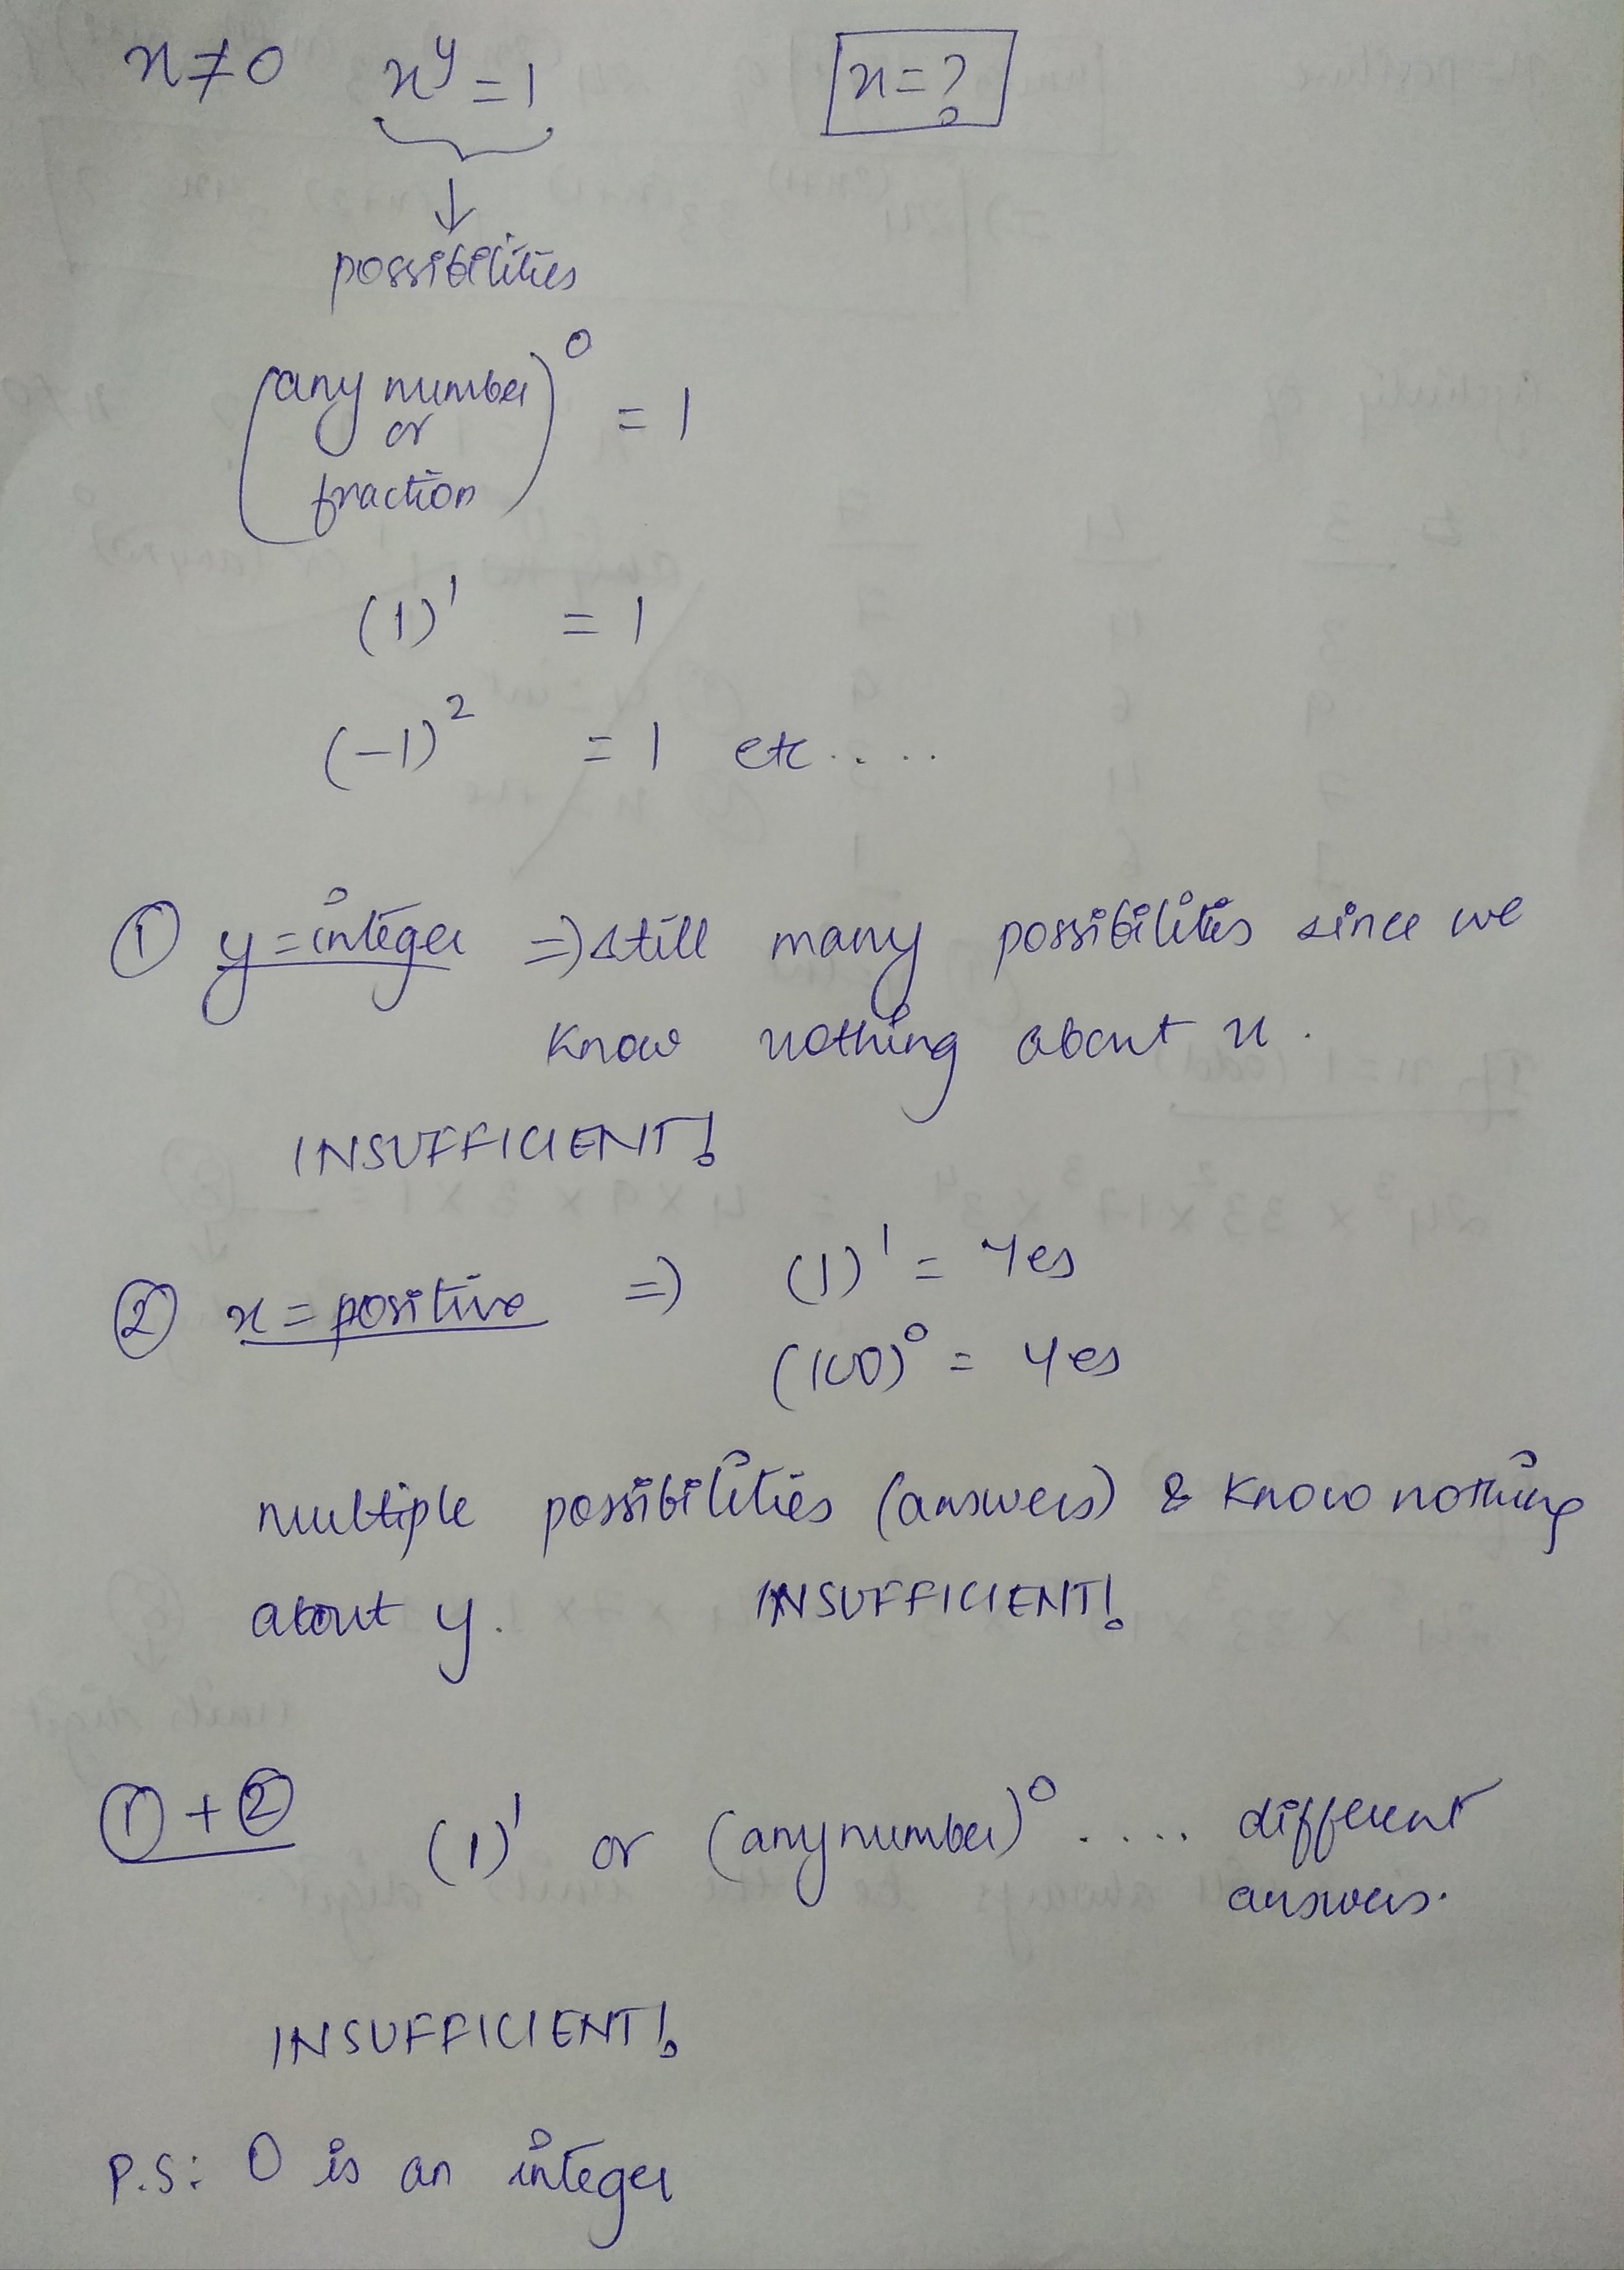 x≠0 xʸ = 1 x = ?
possibilities
(any number or fraction)⁰ = 1
(1)¹ = 1
(-1)² = 1 etc.....
① y = integer => still many possibilities since we
know nothing about x.
INSUFFICIENT!
② x = positive => (1)¹ = Yes
(100)⁰ = Yes
multiple possibilities (answers) & know nothing
about y. INSUFFICIENT!
① + ② (1)¹ or (any number)⁰ .... different
answers.
INSUFFICIENT!
P.S: 0 is an integer